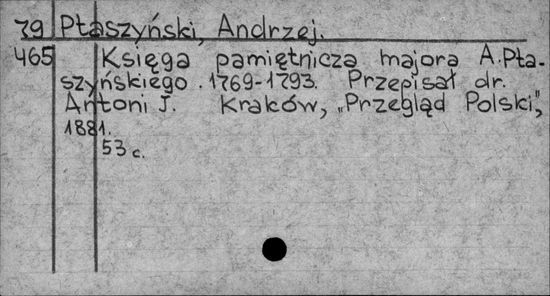 79 Ptaszyński, Andrzej.
465 Księga pamiętnicza majora A. Pta-
szyńskiego. 1769-1793. Przepisał dr.
Antoni J. Kraków, „Przegląd Polski",
1881.
53 c.